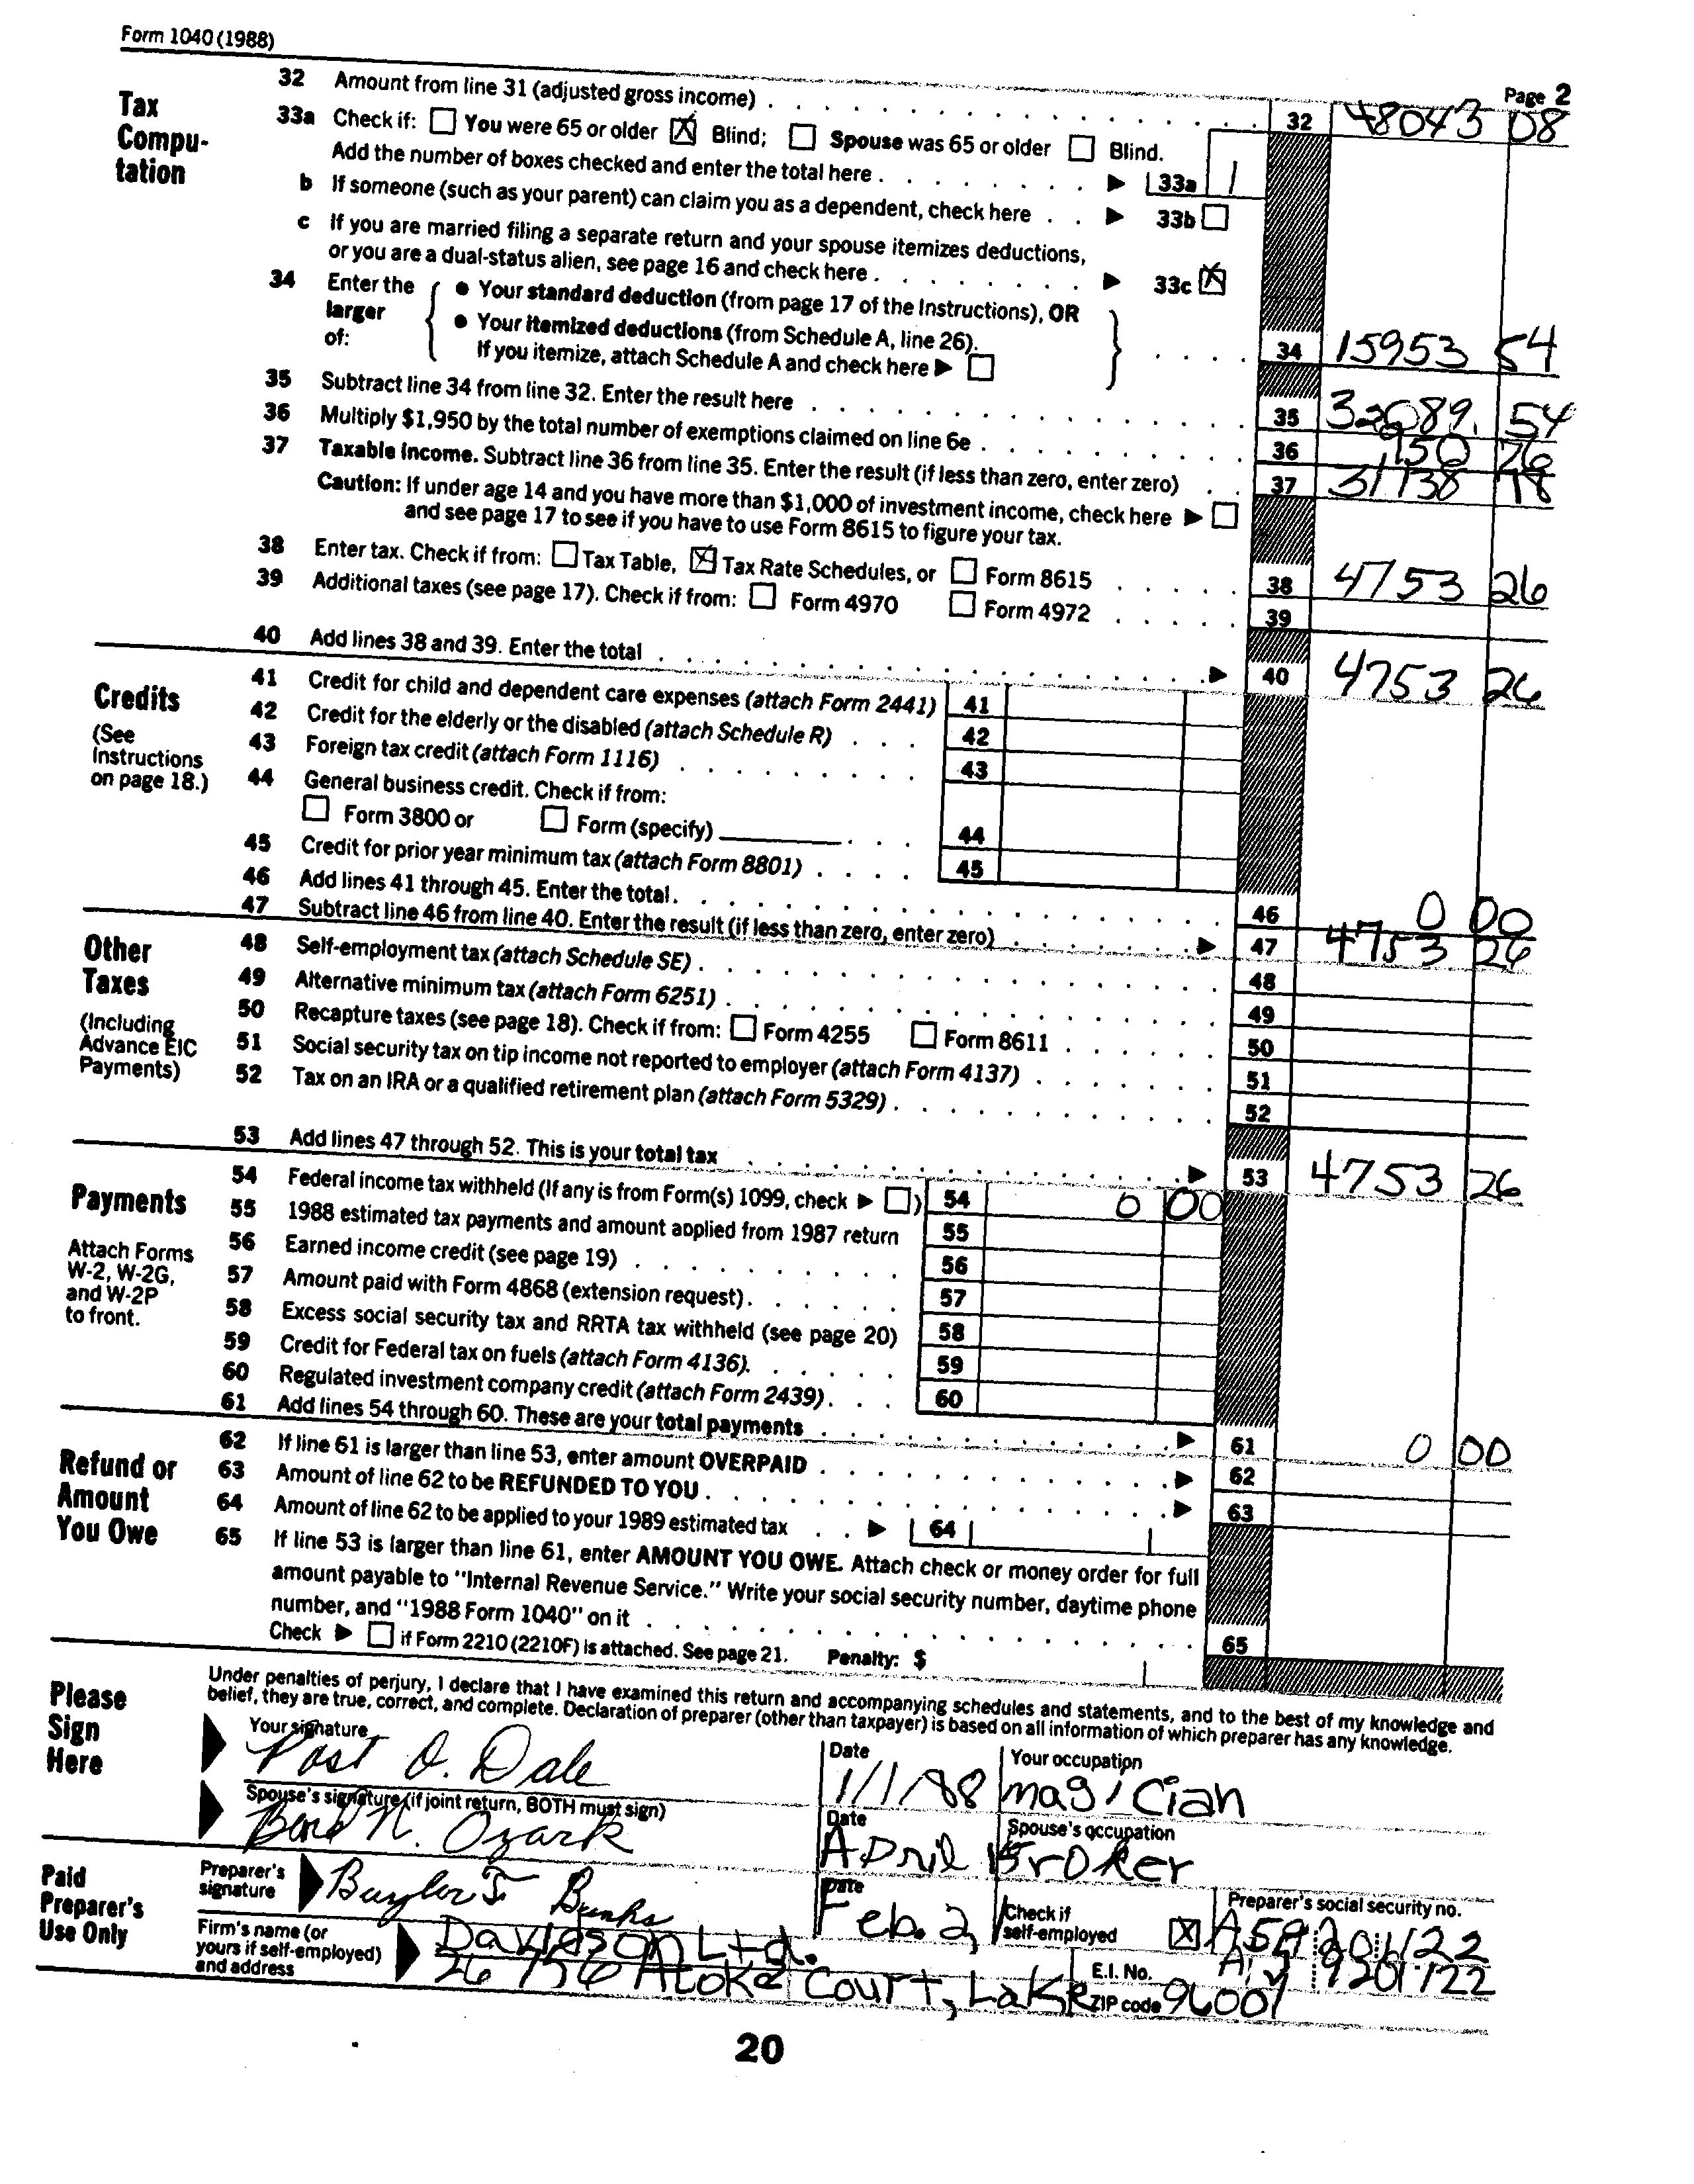 Form 1040 (1988)
Page 2
Tax Compu-tation
32 Amount from line 31 (adjusted gross income) 32 48043 08
33a Check if: You were 65 or older ☒ Blind; Spouse was 65 or older Blind.
Add the number of boxes checked and enter the total here 33a 1
b If someone (such as your parent) can claim you as a dependent, check here 33b
c If you are married filing a separate return and your spouse itemizes deductions,
or you are a dual-status alien, see page 16 and check here 33c ☒
34 Enter the larger of:
● Your standard deduction (from page 17 of the Instructions), OR
● Your itemized deductions (from Schedule A, line 26).
If you itemize, attach Schedule A and check here
34 15953 54
35 Subtract line 34 from line 32. Enter the result here 35 32089. 54
36 Multiply $1,950 by the total number of exemptions claimed on line 6e 36 950 76
37 Taxable income. Subtract line 36 from line 35. Enter the result (if less than zero, enter zero) 37 31138 78
Caution: If under age 14 and you have more than $1,000 of investment income, check here
and see page 17 to see if you have to use Form 8615 to figure your tax.
38 Enter tax. Check if from: Tax Table, ☒ Tax Rate Schedules, or Form 8615 38 4753 26
39 Additional taxes (see page 17). Check if from: Form 4970 Form 4972 39
40 Add lines 38 and 39. Enter the total 40 4753 26
Credits
(See Instructions on page 18.)
41 Credit for child and dependent care expenses (attach Form 2441) 41
42 Credit for the elderly or the disabled (attach Schedule R) 42
43 Foreign tax credit (attach Form 1116) 43
44 General business credit. Check if from:
Form 3800 or Form (specify) 44
45 Credit for prior year minimum tax (attach Form 8801) 45
46 Add lines 41 through 45. Enter the total. 46 0 00
47 Subtract line 46 from line 40. Enter the result (if less than zero, enter zero) 47 4753 26
Other Taxes
(Including Advance EIC Payments)
48 Self-employment tax (attach Schedule SE) 48
49 Alternative minimum tax (attach Form 6251) 49
50 Recapture taxes (see page 18). Check if from: Form 4255 Form 8611 50
51 Social security tax on tip income not reported to employer (attach Form 4137) 51
52 Tax on an IRA or a qualified retirement plan (attach Form 5329) 52
53 Add lines 47 through 52. This is your total tax 53 4753 26
Payments
Attach Forms W-2, W-2G, and W-2P to front.
54 Federal income tax withheld (If any is from Form(s) 1099, check ) 54 0 00
55 1988 estimated tax payments and amount applied from 1987 return 55
56 Earned income credit (see page 19) 56
57 Amount paid with Form 4868 (extension request) 57
58 Excess social security tax and RRTA tax withheld (see page 20) 58
59 Credit for Federal tax on fuels (attach Form 4136). 59
60 Regulated investment company credit (attach Form 2439) 60
61 Add lines 54 through 60. These are your total payments 61 0 00
Refund or Amount You Owe
62 If line 61 is larger than line 53, enter amount OVERPAID 62
63 Amount of line 62 to be REFUNDED TO YOU 63
64 Amount of line 62 to be applied to your 1989 estimated tax 64
65 If line 53 is larger than line 61, enter AMOUNT YOU OWE. Attach check or money order for full
amount payable to "Internal Revenue Service." Write your social security number, daytime phone
number, and "1988 Form 1040" on it 65
Check if Form 2210 (2210F) is attached. See page 21. Penalty: $
Please Sign Here
Under penalties of perjury, I declare that I have examined this return and accompanying schedules and statements, and to the best of my knowledge and
belief, they are true, correct, and complete. Declaration of preparer (other than taxpayer) is based on all information of which preparer has any knowledge.
Your signature Post O. Dale Date 1/1/88 Your occupation magician
Spouse's signature (if joint return, BOTH must sign) N. Ozark Date April 1 Spouse's occupation Broker
Paid Preparer's Use Only
Preparer's signature Date Feb. 2, Check if self-employed ☒ Preparer's social security no.
Firm's name (or yours if self-employed) and address Davidson Ltd. E.I. No.
Court, Lake ZIP code 96001
20